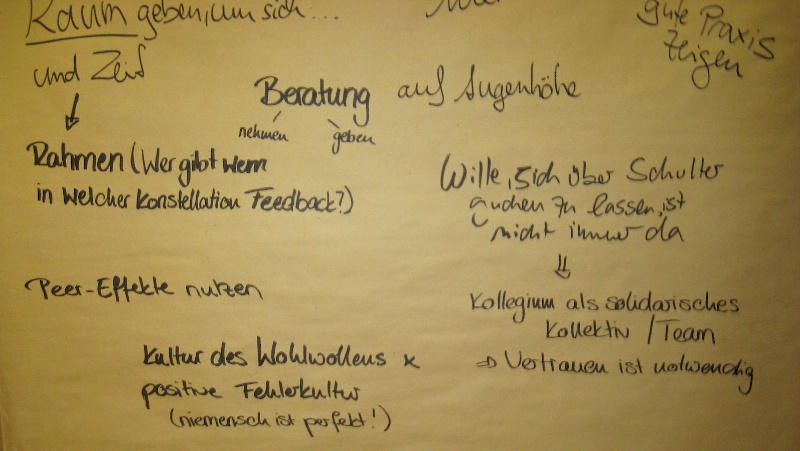 Raum geben, um sich...
und Zeit
gute Praxis
zeigen
Beratung auf Augenhöhe
nehmen geben
Rahmen (Wer gibt wem
in welcher Konstellation Feedback?)
Wille, sich über Schulter
guchen zu lassen, ist
nicht immer da
⇓
Peer-Effekte nutzen
Kollegium als solidarisches
Kollektiv / Team
⇒ Vertrauen ist notwendig
Kultur des Wohlwollens x
positive Fehlerkultur
(niemensch ist perfekt!)